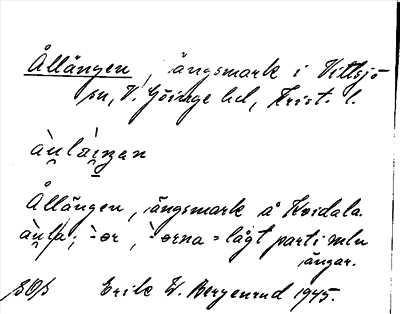 Ållängen, ängsmark i Vittsjö
sn, V. Göinge hd, Krist. l.
Ållängen, ängsmark å Hvidala.
-or, -orna = lågt parti mln
ängar.
Erik W. Bergenrud 1945.